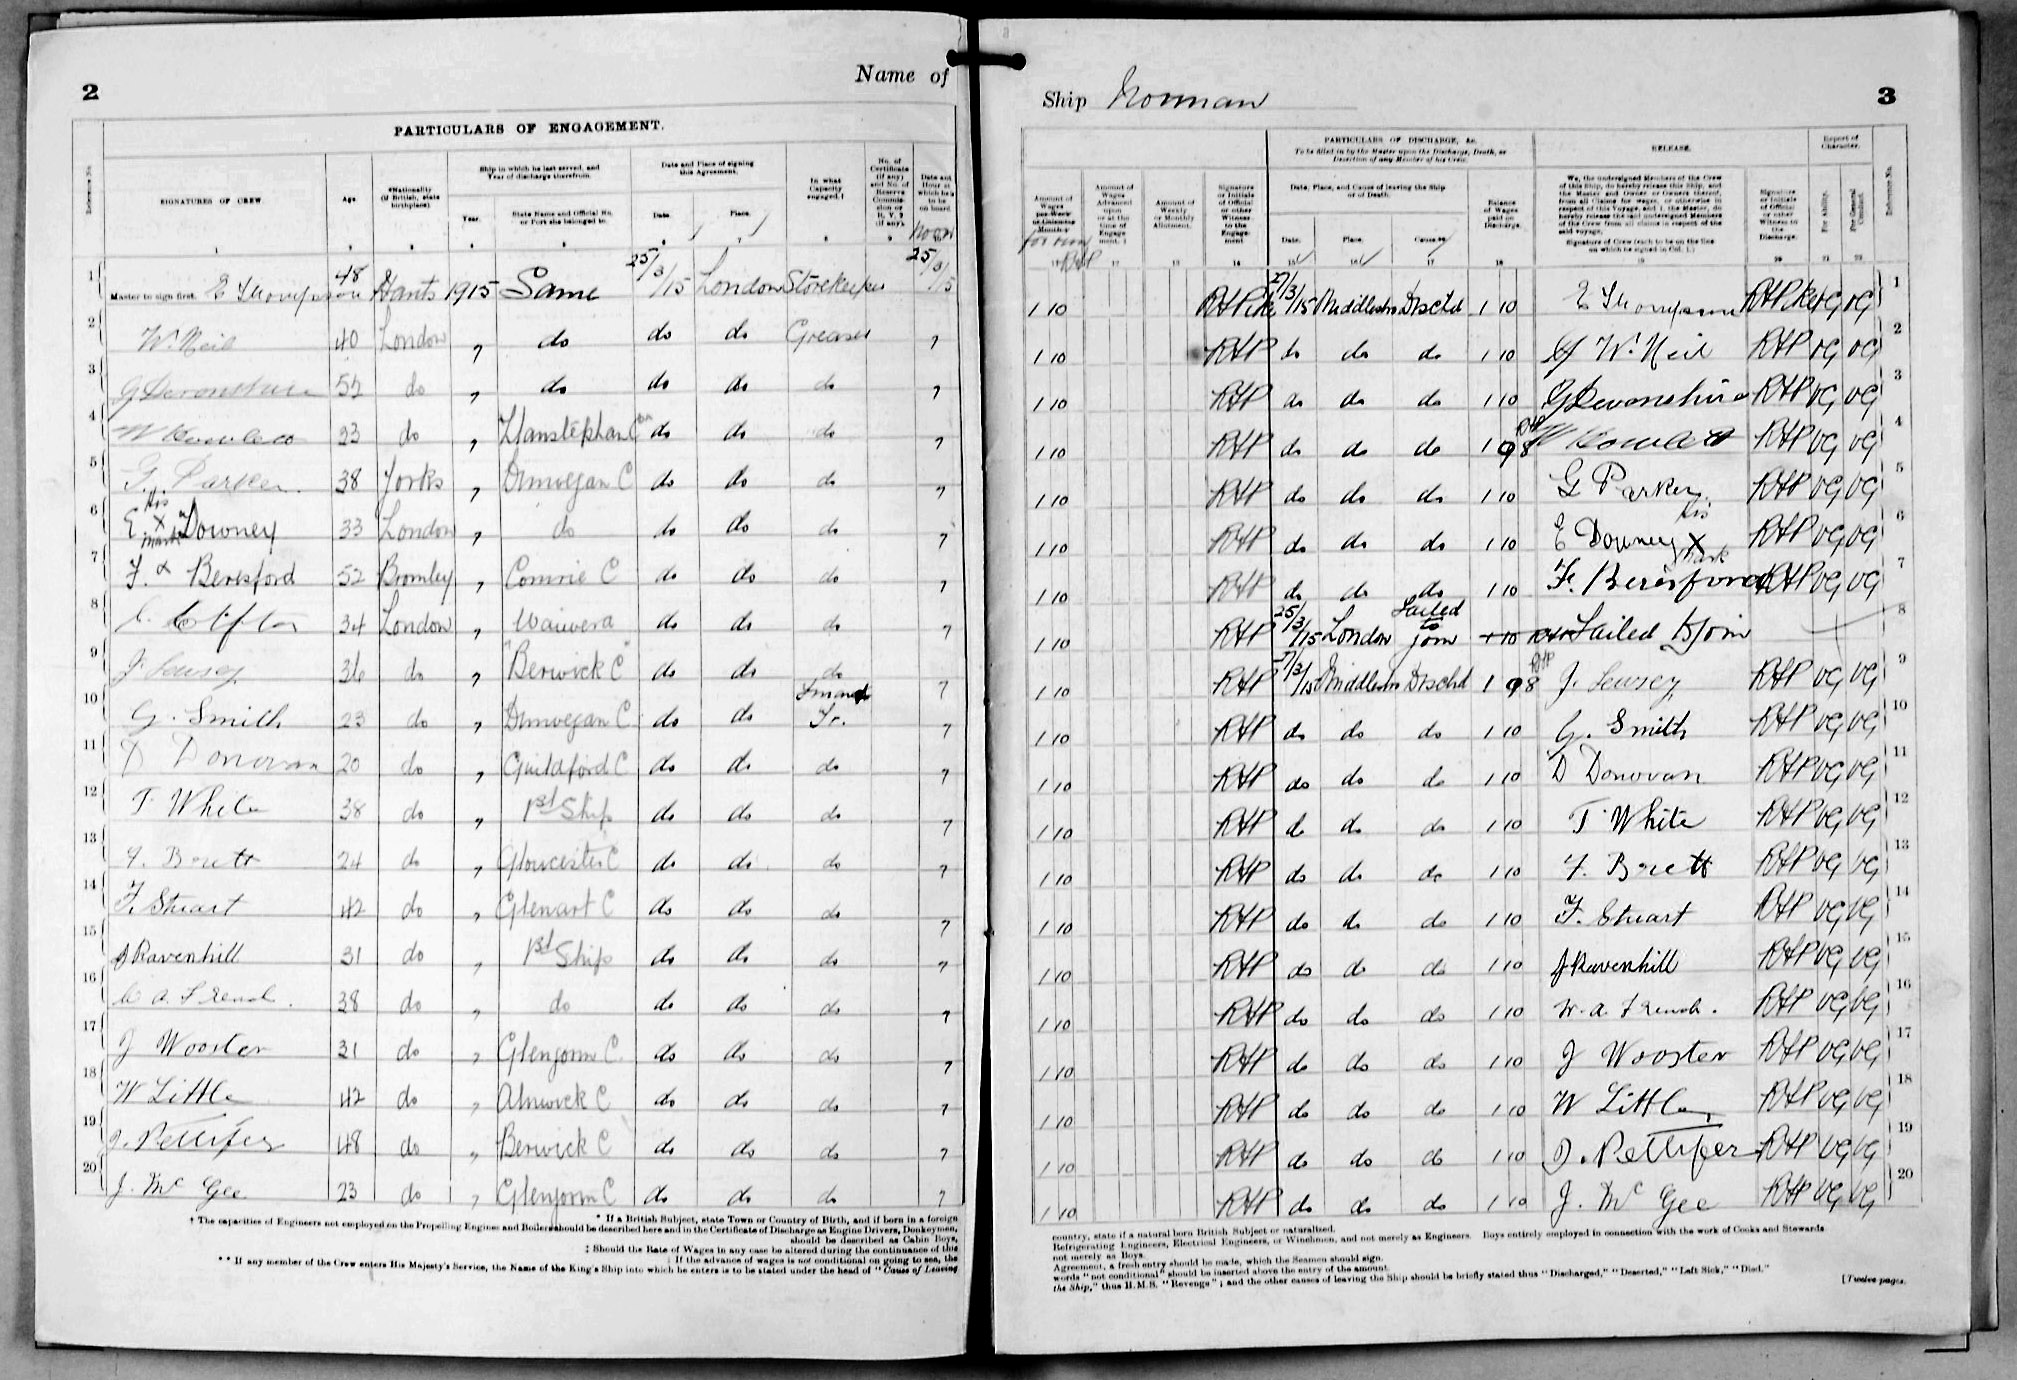 2
Name of
PARTICULARS OF ENGAGEMENT.
Reference No.
SIGNATURES OF CREW
Age
*Nationality (if British, state birthplace).
Ship in which he last served, and Year of discharge therefrom.
Year.
State Name and Official No. or Port she belonged to.
Date and Place of signing this Agreement.
Date.
Place.
In what Capacity engaged.†
No. of Certificate (if any) and No. of Reserve Commission or R. V. 2 (if any).
Date and Hour at which he is to be on board.
Noon
1 Master to sign first. E Thompson 48 Hants 1915 Same 25/3/15 London Storekeeper 25/3/15
2 W. Neil 40 London " do do do Greaser "
3 G Devonshire 52 do " do do do do "
4 W 23 do " Llanstephan Cn do do do "
5 G. Parker. 38 Yorks " Dunvegan C do do do "
6 E. his x mark Downey 33 London " do do do do "
7 F. x Beresford 52 Bromley " Comrie C do do do "
8 C. Clifton 34 London " Waiwera do do do "
9 J 36 do " "Berwick C" do do do "
10 G. Smith 23 do " Dunvegan C do do Fireman & Tr. "
11 D Donovan 20 do " Guildford C do do do "
12 T. White 38 do " 1st Ship do do do "
13 F. Brett 24 do " Gloucester C do do do "
14 F. Stuart 42 do " Glenart C do do do "
15 J Ravenhill 31 do " 1st Ship do do do "
16 W A. French. 38 do " do do do do "
17 J Wooster 31 do " Glengorm C. do do do "
18 W Little 42 do " Alnwick C do do do "
19 J. Pettifer 48 do " Berwick C do do do "
20 J. Mc Gee 23 do " Glengorm C do do do "
* If a British Subject, state Town or Country of Birth, and if born in a foreign
† The capacities of Engineers not employed on the Propelling Engines and Boilers should be described here and in the Certificate of Discharge as Engine Drivers, Donkeymen,
should be described as Cabin Boys,
‡ Should the Rate of Wages in any case be altered during the continuance of this
If the advance of wages is not conditional on going to sea, the
** If any member of the Crew enters His Majesty's Service, the Name of the King's Ship into which he enters is to be stated under the head of "Cause of Leaving
Ship Norman
3
PARTICULARS OF DISCHARGE, &c.
To be filled in by the Master upon the Discharge, Death, or Desertion of any Member of his Crew.
RELEASE.
Report of Character.
Amount of Wages per Week or Calendar Month.‡
for run
RHP
Amount of Wages Advanced upon or at the time of Engagement.
Amount of Weekly or Monthly Allotment.
Signature or Initials of Official or other Witness to the Engagement
Date, Place, and Cause of leaving the Ship or of Death.
Date.
Place.
Cause.**
Balance of Wages paid on Discharge.
We, the undersigned Members of the Crew of this Ship, do hereby release this Ship, and the Master and Owner or Owners thereof, from all Claims for wages, or otherwise in respect of this Voyage, and I, the Master, do hereby release the said undersigned Members of the Crew from all claims in respect of the said voyage.
Signature of Crew (each to be on the line on which he signed in Col. 1.)
Signature or Initials of Official or other Witness to the Discharge.
For Ability.
For General Conduct.
Reference No.
16 17 13 14 15 16 17 18 19 20 21 22
1 10 RHPike 27/3/15 Middlesbro Dischd 1 10 E Thompson RHPike VG VG 1
1 10 RHP do do do 1 10 W. Neil RHP VG VG 2
1 10 RHP do do do 1 10 G Devonshire RHP VG VG 3
1 10 RHP do do do 1 9 8 RHP W RHP VG VG 4
1 10 RHP do do do 1 10 G Parker RHP VG VG 5
1 10 RHP do do do 1 10 E Downey his x mark RHP VG VG 6
1 10 RHP do do do 1 10 F. Beresford RHP VG VG 7
1 10 RHP 25/3/15 London Failed to join 1 10 RHP Failed to join 8
1 10 RHP 27/3/15 Middlesbro Dischd 1 9 8 RHP J. RHP VG VG 9
1 10 RHP do do do 1 10 G. Smith RHP VG VG 10
1 10 RHP do do do 1 10 D Donovan RHP VG VG 11
1 10 RHP do do do 1 10 T. White RHP VG VG 12
1 10 RHP do do do 1 10 F. Brett RHP VG VG 13
1 10 RHP do do do 1 10 F. Stuart RHP VG VG 14
1 10 RHP do do do 1 10 J Ravenhill RHP VG VG 15
1 10 RHP do do do 1 10 W. A. French. RHP VG VG 16
1 10 RHP do do do 1 10 J Wooster RHP VG VG 17
1 10 RHP do do do 1 10 W Little RHP VG VG 18
1 10 RHP do do do 1 10 J. Pettifer RHP VG VG 19
1 10 RHP do do do 1 10 J. Mc Gee RHP VG VG 20
country, state if a natural born British Subject or naturalized.
Refrigerating Engineers, Electrical Engineers, or Winchmen, and not merely as Engineers. Boys entirely employed in connection with the work of Cooks and Stewards
not merely as Boys.
Agreement, a fresh entry should be made, which the Seamen should sign.
words "not conditional" should be inserted above the entry of the amount.
the Ship," thus H.M.S. "Revenge"; and the other causes of leaving the Ship should be briefly stated thus "Discharged," "Deserted," "Left Sick," "Died."
[Twelve pages.